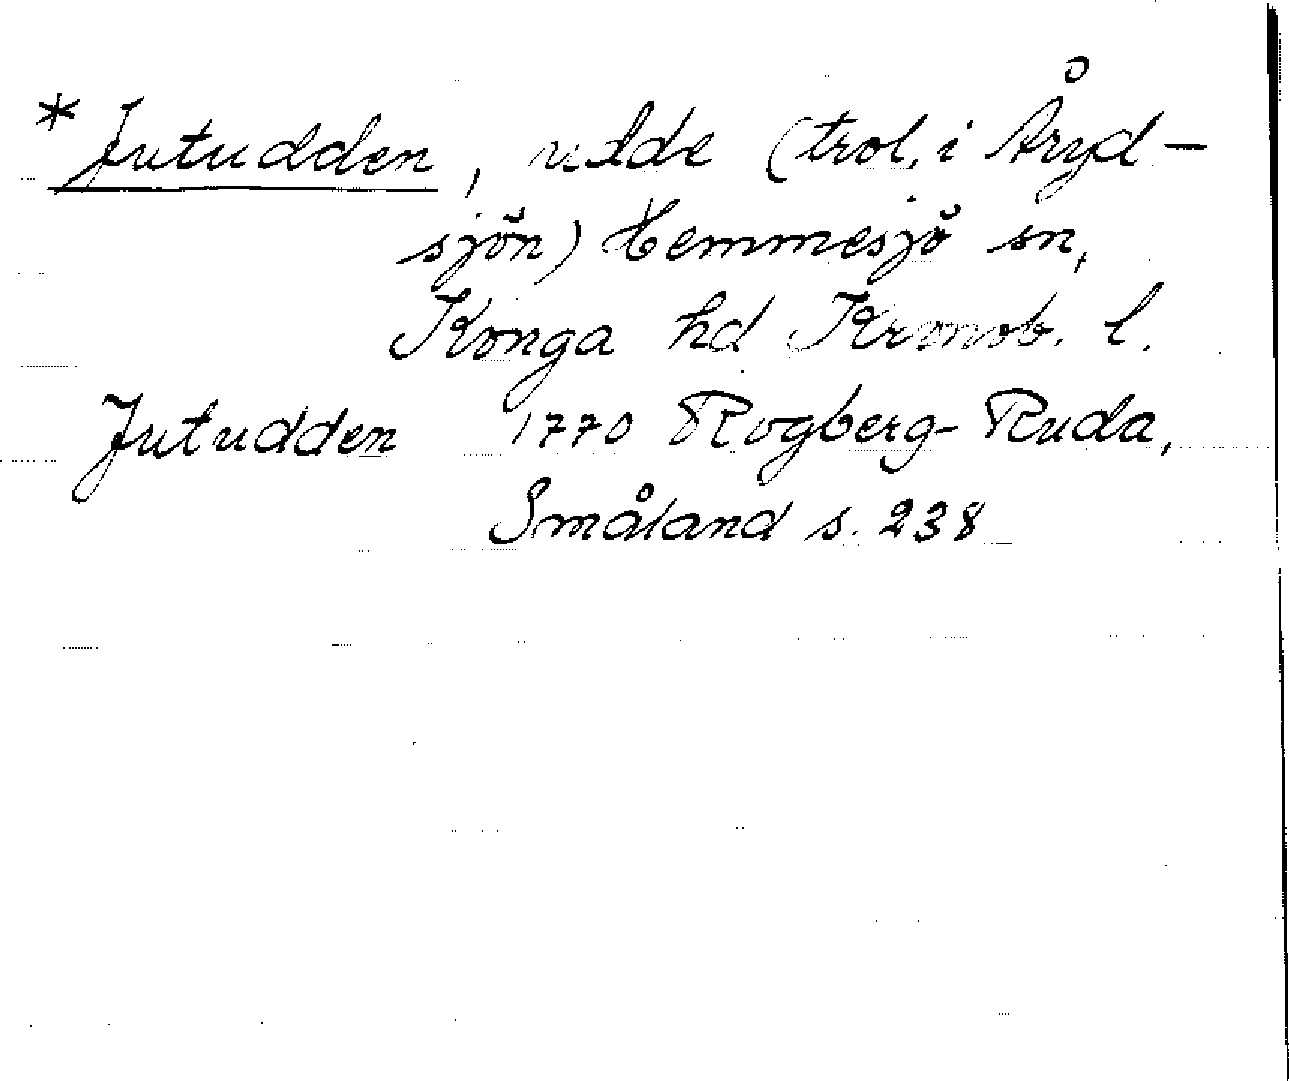 * Jutudden, udde (trol. i Åryd-
sjön) Hemmesjö sn,
Konga hd Kronob. l.
Jutudden 1770 Rogberg-Ruda,
Småland s. 238